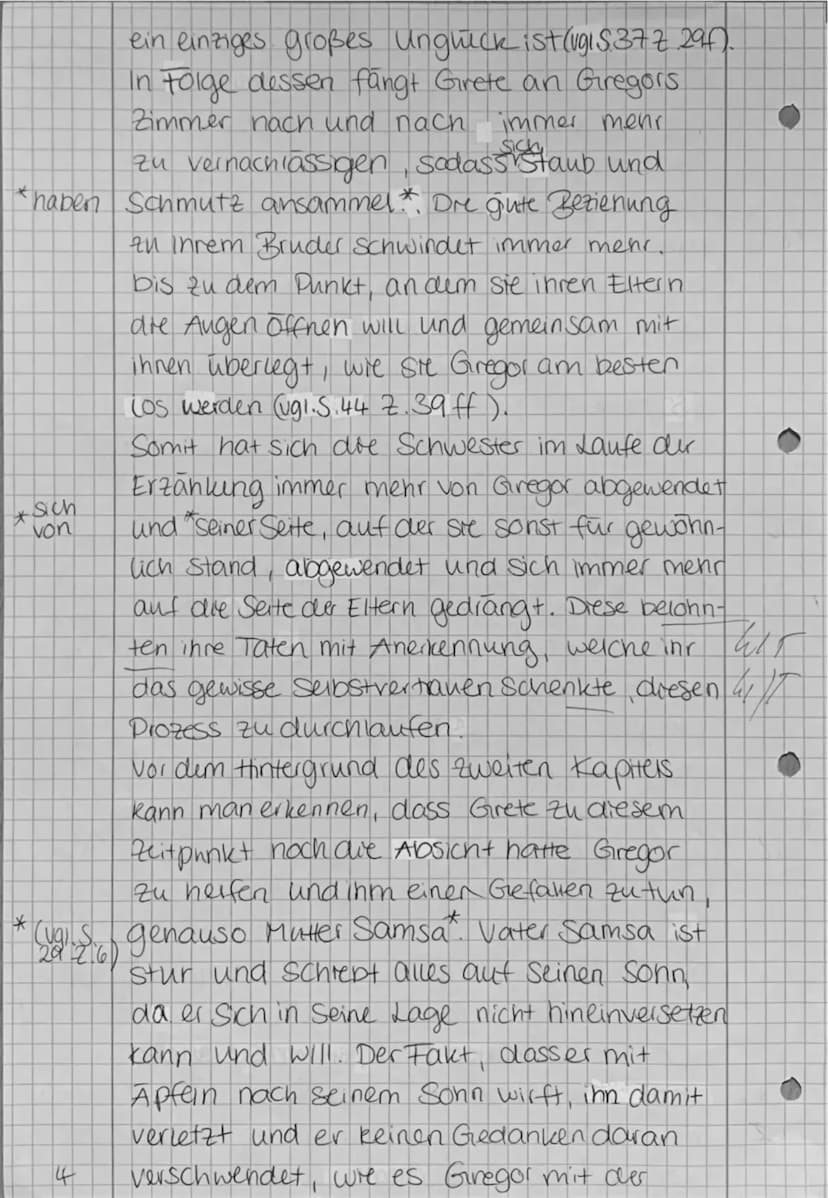 ein einziges großes Unglück ist (vgl. S. 37 Z. 29f).
In Folge dessen fängt Grete an Gregors
Zimmer nach und nach immer mehr
sich
zu vernachlässigen, sodass Staub und
*haben Schmutz ansammel*. Die gute Beziehung
zu ihrem Bruder schwindet immer mehr.
bis zu dem Punkt, an dem sie ihren Eltern
die Augen öffnen will und gemeinsam mit
ihnen überlegt, wie sie Gregor am besten
los werden (vgl. S. 44 Z. 39 ff).
Somit hat sich die Schwester im Laufe der
Erzählung immer mehr von Gregor abgewendet
*sich von und *seiner Seite, auf der sie sonst für gewöhn-
lich stand, abgewendet und sich immer mehr
auf die Seite der Eltern gedrängt. Diese belohn-
ten ihre Taten mit Anerkennung, welche ihr
das gewisse Selbstvertrauen schenkte, diesen
Prozess zu durchlaufen.
Vor dem Hintergrund des zweiten Kapitels
kann man erkennen, dass Grete zu diesem
Zeitpunkt noch die Absicht hatte Gregor
zu helfen und ihm einen Gefallen zu tun,
*(vgl. S. 29 Z. 6) genauso Mutter Samsa*. Vater Samsa ist
stur und schiebt alles auf seinen Sohn,
da er sich in seine Lage nicht hineinversetzen
kann und will. Der Fakt, dass er mit
Äpfeln nach seinem Sohn wirft, ihn damit
verletzt und er keinen Gedanken daran
4 verschwendet, wie es Gregor mit der